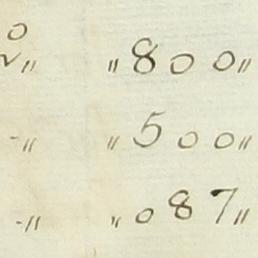 0 〃 〃 800 〃
-〃 〃 500 〃
-〃 〃 087 〃